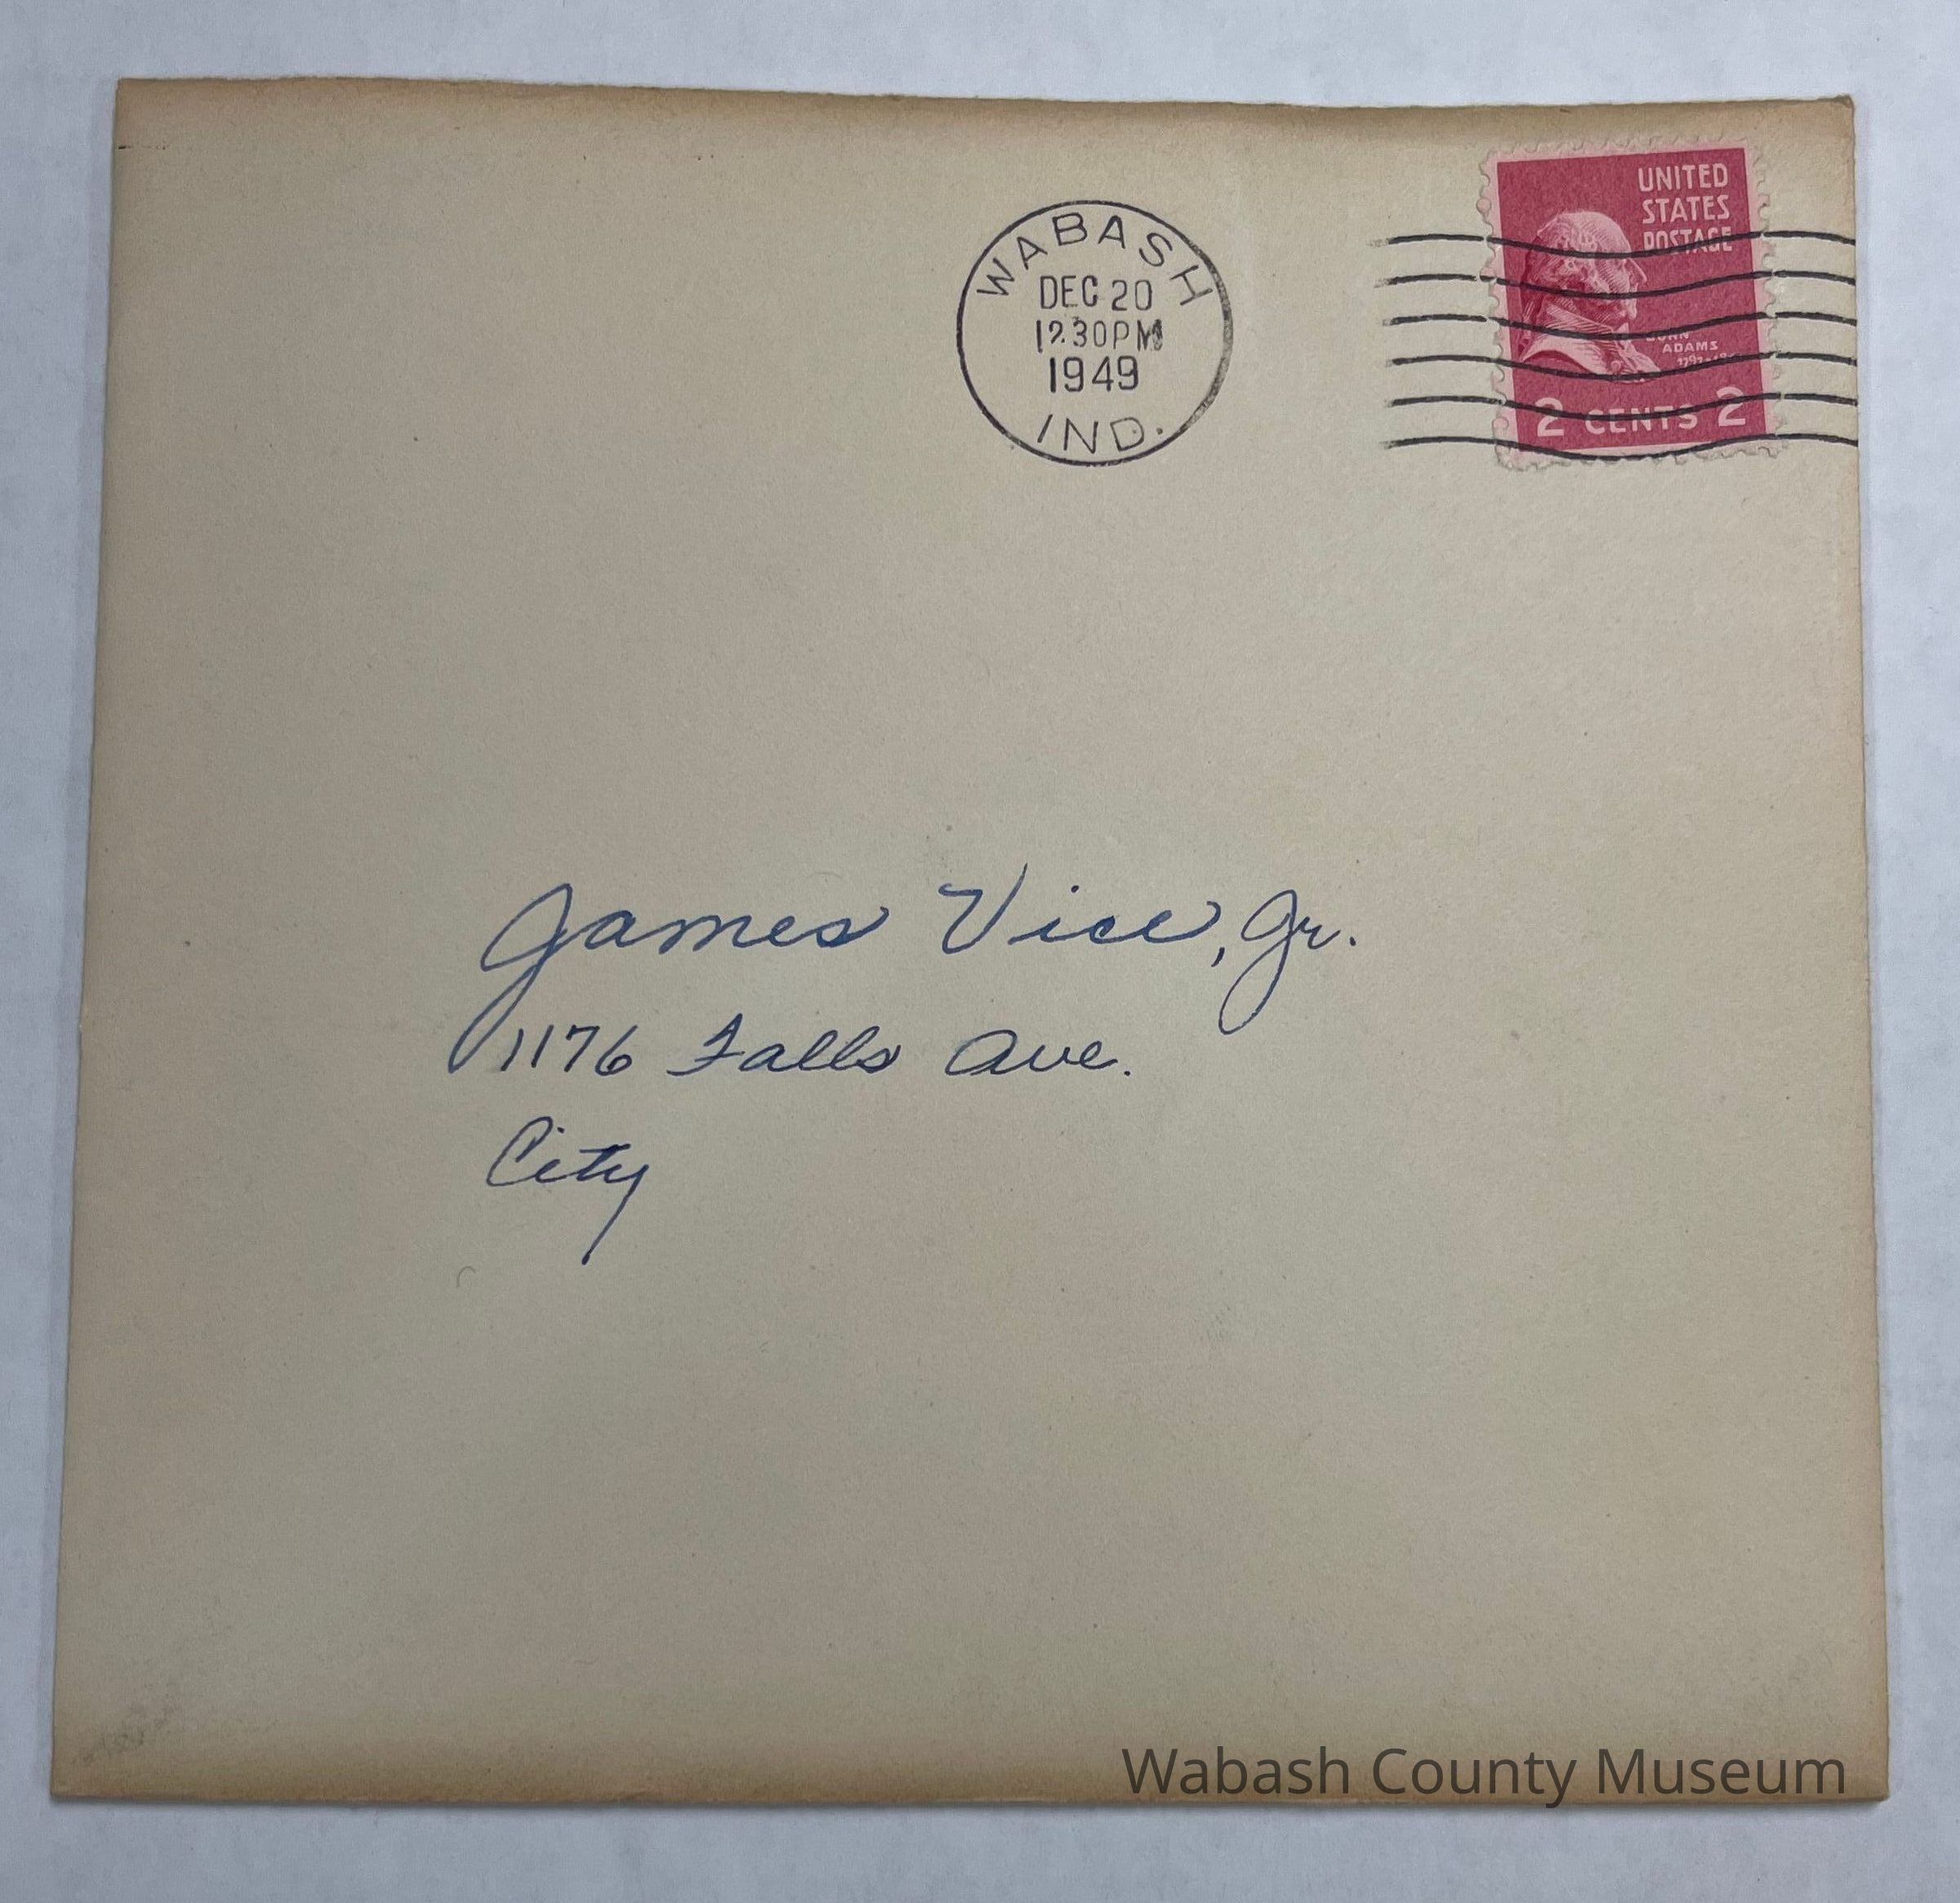 WABASH
DEC 20
12 30 PM
1949
IND.
UNITED
STATES
POSTAGE
ADAMS
2 CENTS 2
James Vice, Jr.
1176 Falls Ave.
City
Wabash County Museum